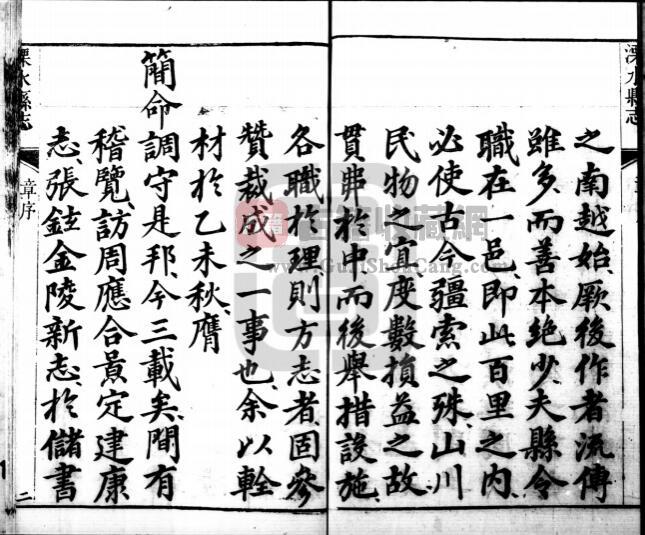 溧水縣志
之南越始、厥後作者流傳
雖多、而善本絕少、夫縣令
職在一邑、即此百里之內、
必使古今疆索之殊、山川
民物之宜、度數損益之故、
貫弗於中、而後舉措設施、
各職於理、則方志者、固參
贊裁成之一事也、余以輇
材、於乙未秋、膺
簡命調守是邦、今三載矣、間有
稽覽、訪周應合景定建康
志、張鉉金陵新志、於儲書
溧水縣志
章序
二
www.GuJiShouCang.com